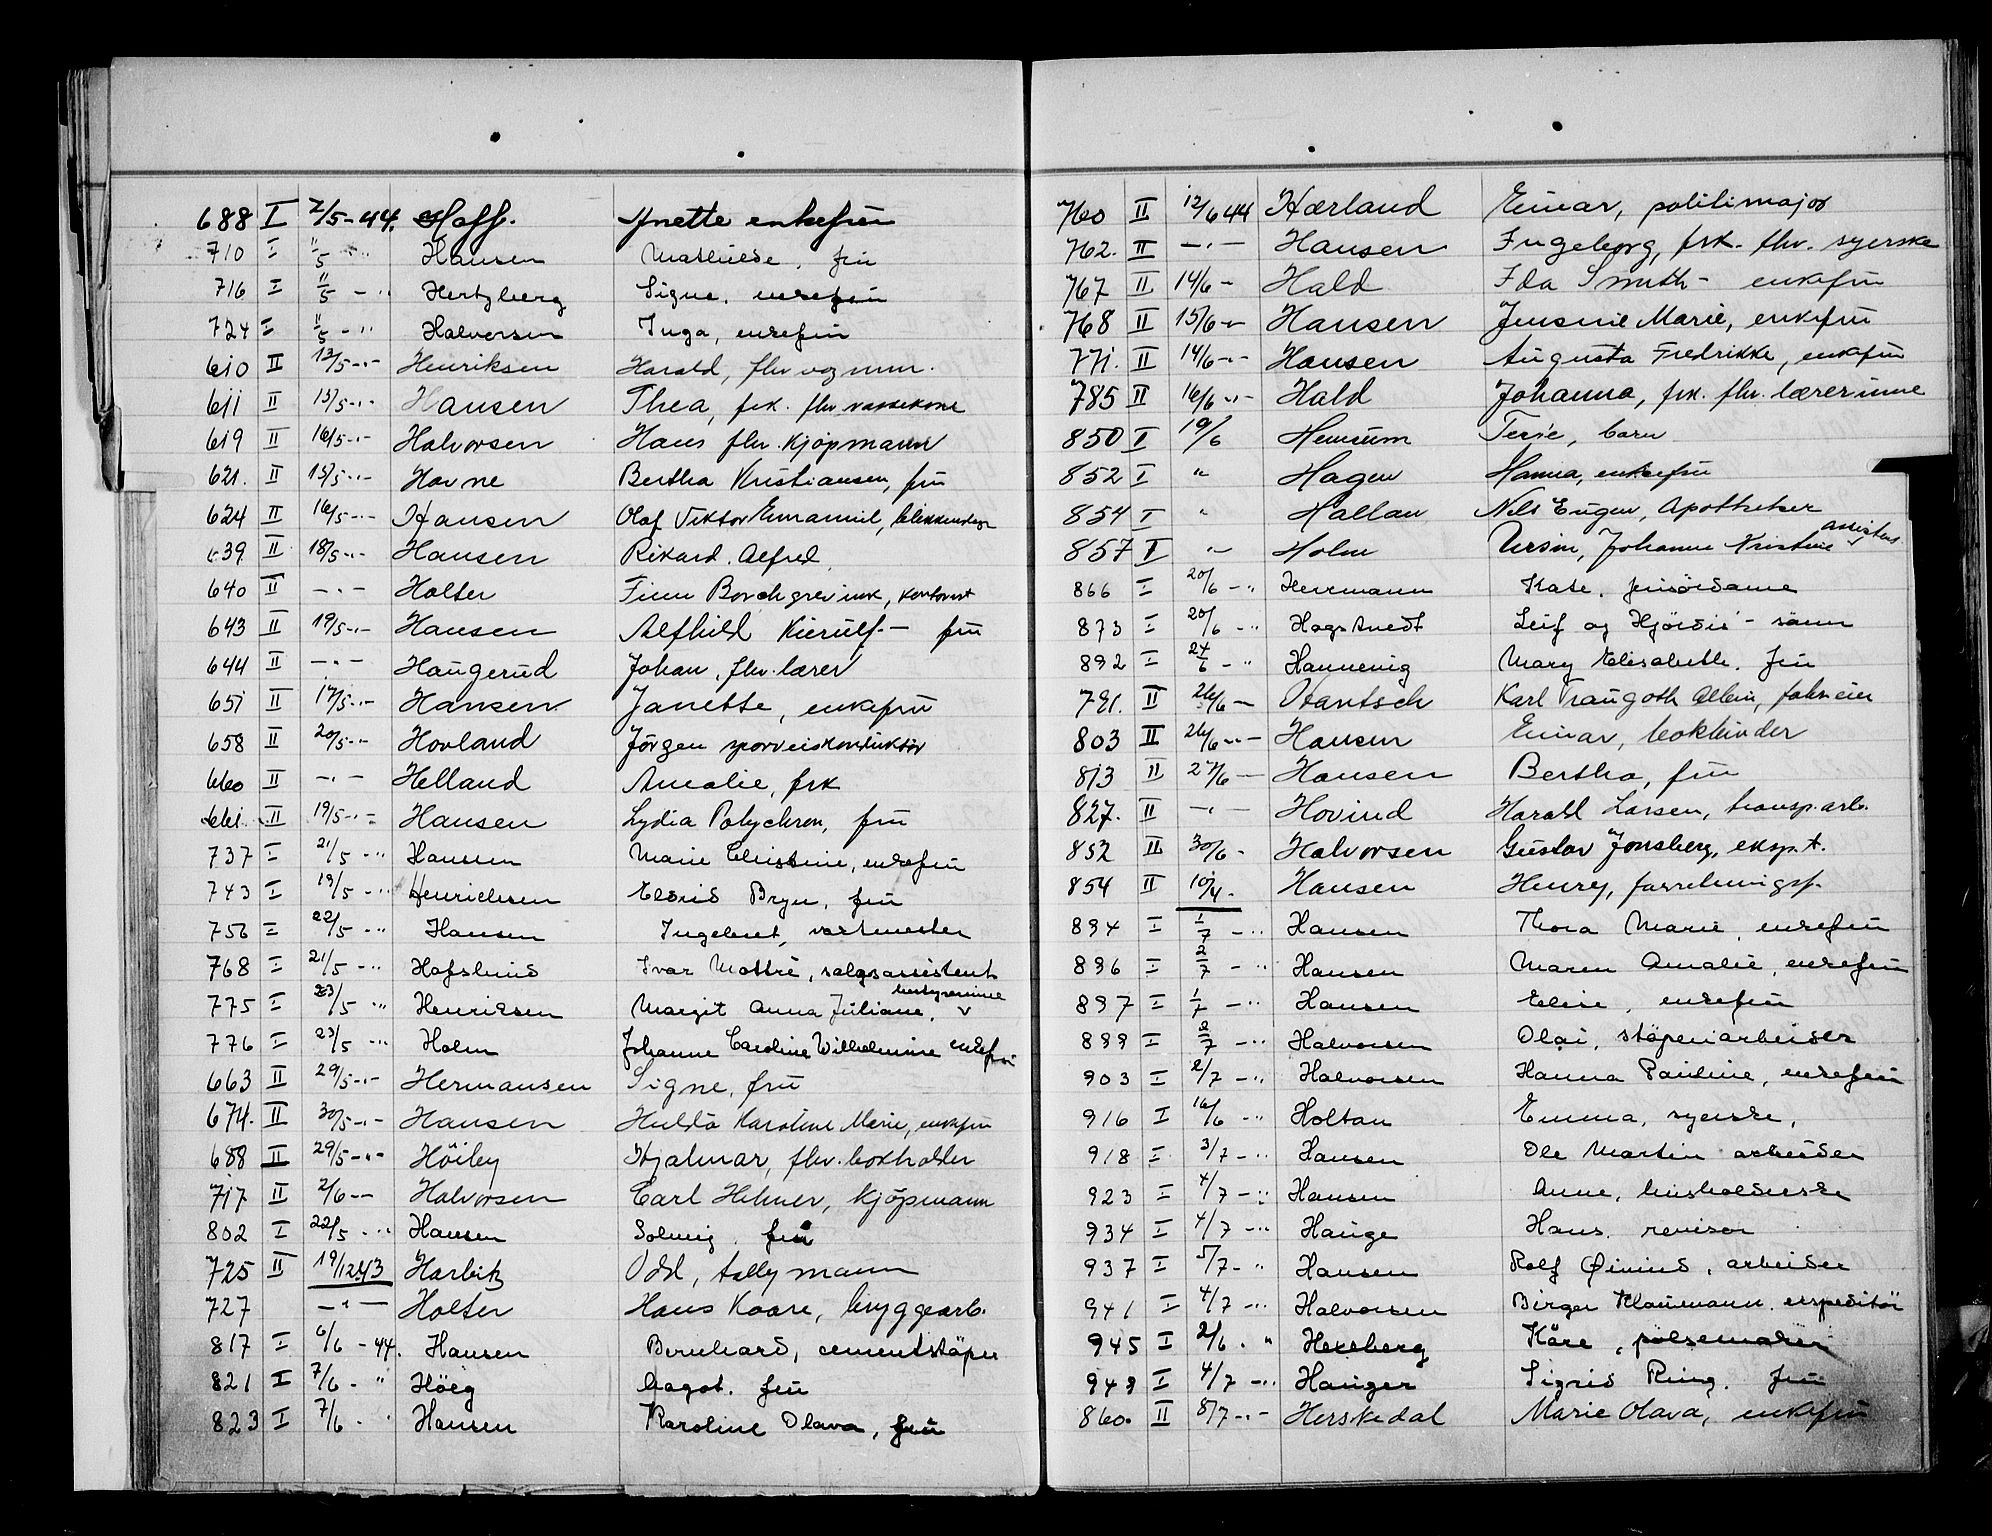 688 I 2/5-44. Hoff. Anette enkefru
710 I 11/5 -"- Hansen Mathilde, fru
716 I 11/5 -"- Hertzberg Signe, enkefru
724 I 11/5 -"- Halvorsen Inga, enkefru
610 II 13/5-"- Henriksen Harald, fhv. vognm.
611 II 15/5-"- Hansen Thea, frk. fhv vaskekone
619 II 16/5-"- Halvorsen Hans fhv. kjøpmann
621. II 15/5-"- Hovne Bertha Kristiansen, fru
624 II 16/5-"- Hansen Olaf Viktor Emanuel, blikkenslager
639 II 18/5-"- Hansen Rikard Alfred.
640 II -"- Holter Finn Borchgrevink, kontorist
643 II 19/5-"- Hansen Alfhild Kierulf- fru
644 II -"- Haugerud Johan, fhv. lærer
651 II 17/5-"- Hansen Janette, enkefru
658 II 20/5-"- Hovland Jörgen sporveiskonduktör
660 II -"- Helland Amalie, frk
661 II 19/5-"- Hansen Lydia Polychron, fru
737 I 21/5 -"- Hansen Marie Christine, enkefru
743 I 19/5 -"- Henrichsen Eldrid Bryn, fru
756 I 22/5 -"- Hansen Ingebret, vaktmester
768 I 21/5 -"- Hafslund Ivar Mattré, salgsassistent
775 I 23/5 -"- Henriksen Margit Anna Juliane, bestyrerinne
776 I 23/5 -"- Holm Johanne Caroline Wilhelmine enkefru
663 II 29/5-"- Hermansen Signe, fru
674. II 30/5-"- Hansen Hulda Karoline Marie, enkefru
688 II 29/5-"- Höiby Hjalmar, fhv. bokholder
717 II 2/6-"- Halvorsen Carl Hilmer, kjöpmann
802 I 22/5 -"- Hansen Solveig. fru
725 II 19/12 43 Harbitz Odd, tallymann
727 -"- Holter Hans Kaare, bryggearb.
817 I 6/6 - 44. Hansen Bernhard, cementstöper
821 I 7/6 - " Höeg Dagot. fru
823 I 7/6 - " Hansen Karoline Olava, fru
760 II 12/6 44 Hærland Einar, politimajor
762. II -"- Hansen Ingeborg, frk. fhv. syerske
767 II 14/6 - Hald Ida Smith- enkefru
768 II 15/6 - Hansen Jensine Marie, enkefru
771. II 14/6 -"- Hansen Augusta Fredrikke, enkefru
785 II 16/6 -"- Hald Johanna, frk. fhv. lærerinne
850 I 19/6 Hemsum Terje, barn
852 I " Hagen Hanna, enkefru
854 I " Hallan Nils Eugen, Apotheker
857 I " Holm Ursin, Johanne Kristine assistent
866 I 20/6 -"- Herrmann Kate, frisördame
873 I 20/6 -"- Hogstvedt Leif og Hjördis' - sönn
892 I 24/6 -"- Hannevig Mary Elisabeth. fru
791. II 26/6 - Hantsch Karl Traugoth Albin, fabr.eier
803 II 26/6 -"- Hansen Einar, bokbinder
813 II 27/6 - Hansen Bertha, fru
827. II -"- Hovind Harald Larsen, transp.arb.
852 II 30/6 - Halvorsen Gustav Jonsberg, eksp.t.
854 II 10/4. Hansen Henry, forretningsf.
894 I 1/7 -"- Hansen Thora Marie, enkefru
896 I 2/7 -"- Hansen Maren Amalie, enkefru
897 I 1/7 -"- Hansen Elise, enkefru
899 I 2/7 -"- Halvorsen Olai, støperiarbeider
903 I 2/7 -"- Halvorsen Hanna Pauline, enkefru
916 I 16/6 -"- Holtan Emma, syerske,
918 I 3/7 -"- Hansen Ole Martin arbeider
923 I 4/7 -"- Hansen Anne, husholderske
934 I 4/7 -"- Hauge Hans, revisor
937 I 5/7 -"- Hansen Rolf Øivind, arbeider
941 I 4/7 -"- Halvorsen Birger Klaumann. ekspeditör
945 I 2/6. " Hexeberg Kåre, pølsemaker
949 I 4/7 -"- Hanger Sigrid Ring. fru
860. II 8/7 -"- Herskedal Marie Olava, enkefru